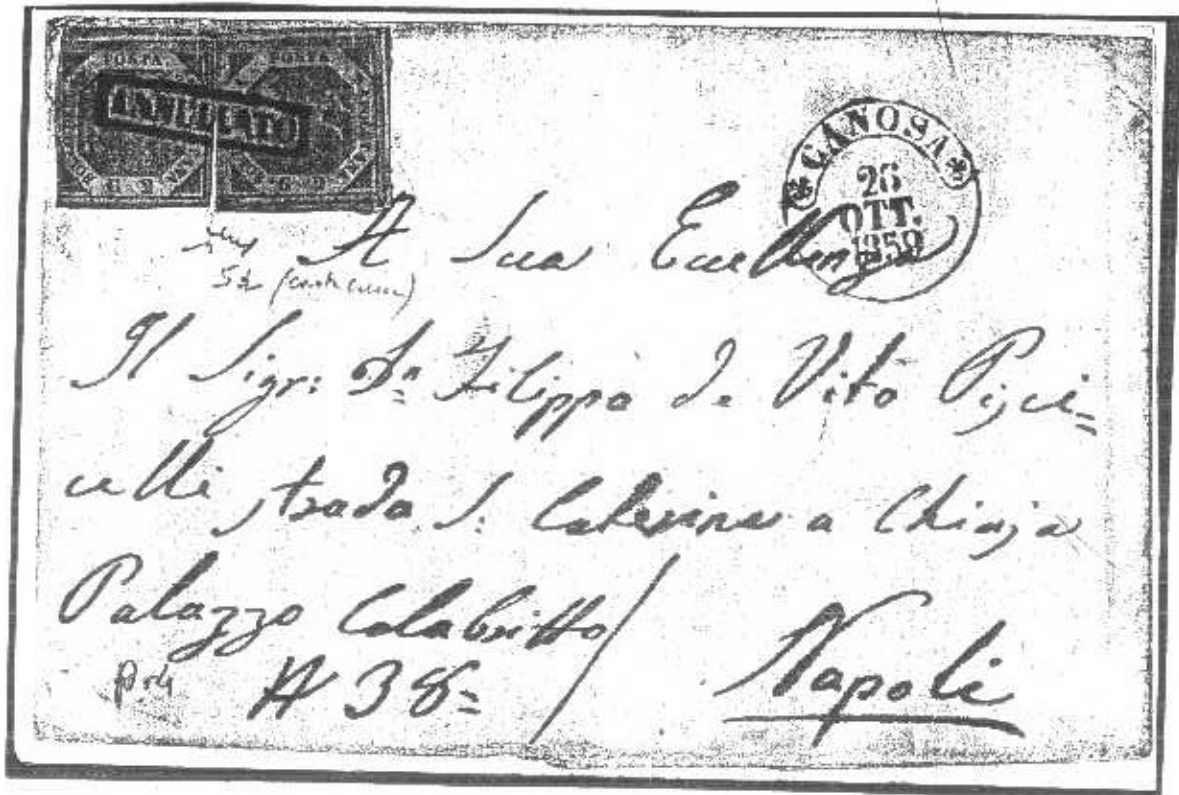 POSTA POSTA
ANNULLATO
G. 2 G. 2
CANOSA
26
OTT.
1859
A Sua Eccellenza
Il Sigr: Dn Filippo de Vito Pisci=
celli strada S: Caterina a Chiaja
Palazzo Calabritto
N 38=
Napoli